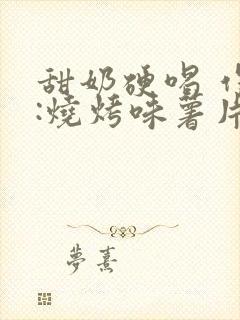 甜奶硬唱
:燒烤味薯片
夢熹